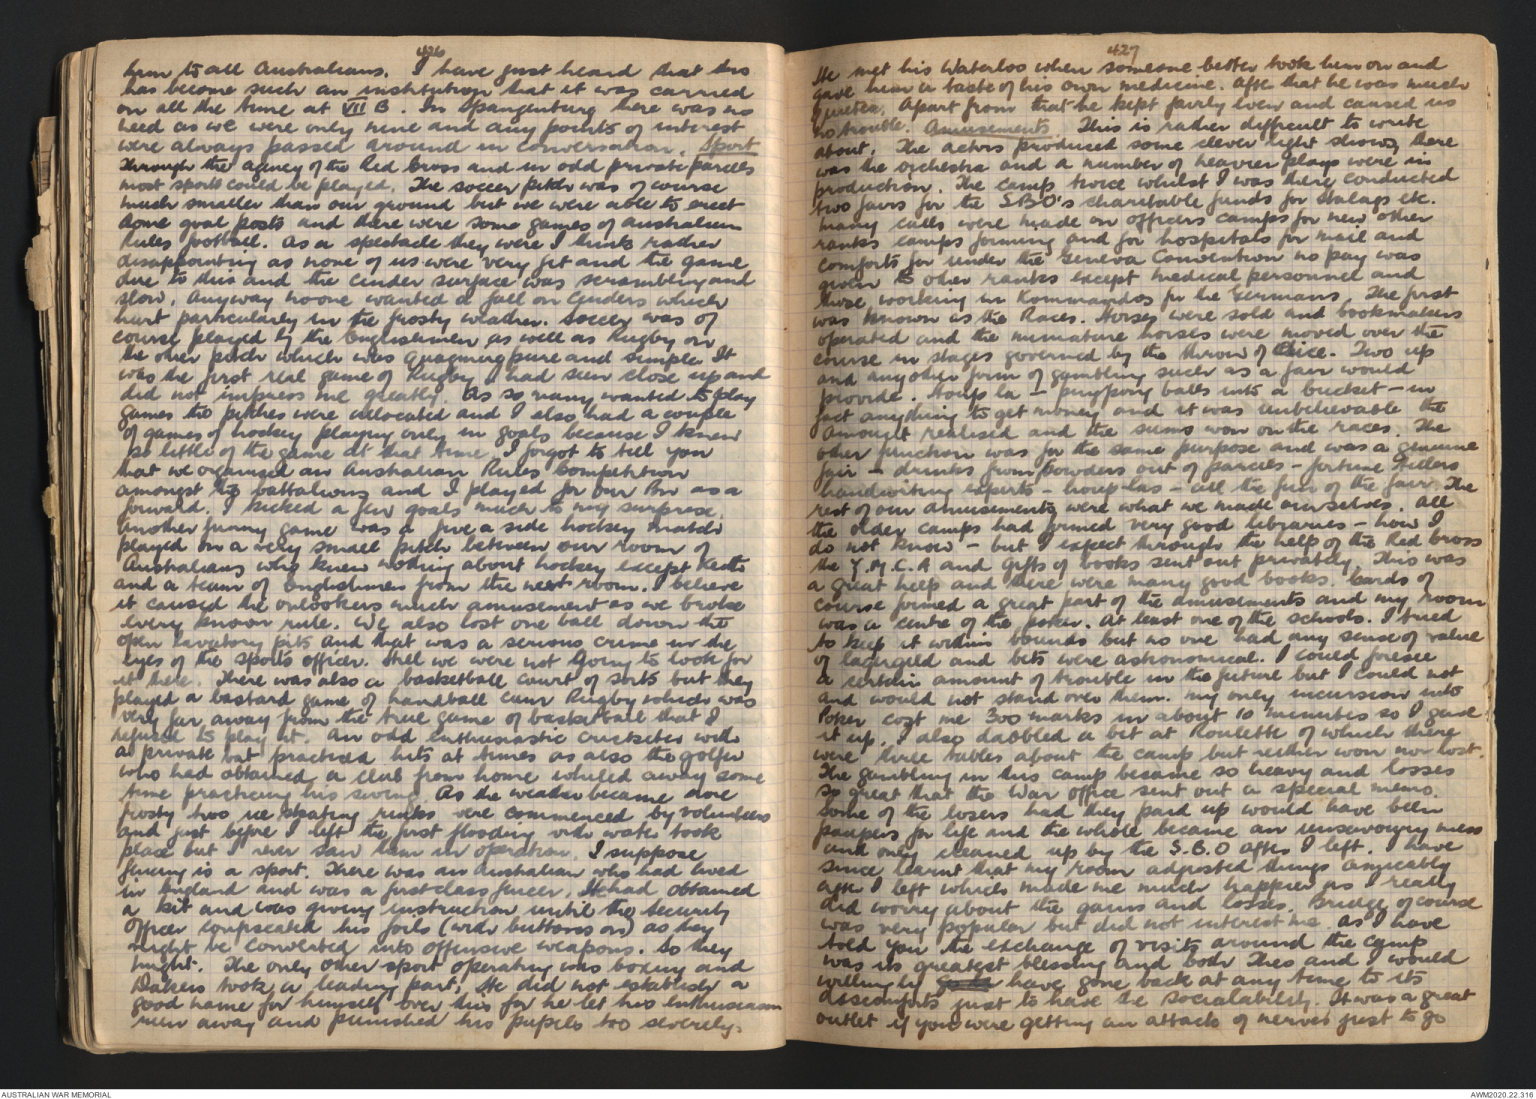 426
him to all Australians. I have just heard that this
has become such an institution that it was carried
on all the time at VII B. In Spangenburg there was no
need as we were only nine and any points of interest
were always passed around in conversation. Sport
Through the agency of the Red Cross and in odd private parcels
most sports could be played. The soccer pitch was of course
much smaller than our ground but we were able to erect
some goal posts and there were some games of Australian
Rules football. As a spectacle they were I think rather
disappointing as none of us were very fit and the game
due to this and the cinder surface was scrambling and
slow. Anyway no one wanted a fall on cinders which
hurt particularly in the frosty weather. Soccer was of
course played by the Englishmen as well as Rugby on
the other pitch which was quagmire pure and simple. It
was the first real game of Rugby I had seen close up and
did not impress me greatly. As so many wanted to play
games the pitches were allocated and I also had a couple
of games of hockey playing only in goals because I knew
so little of the game at that time. I forgot to tell you
that we organised an Australian Rules Competition
amongst the battalions and I played for our Bn as a
forward. I kicked a few goals much to my surprise.
Another funny game was a five a side hockey match
played on a very small pitch between our room of
Australians who knew nothing about hockey except
and a team of Englishmen from the next room. I believe
it caused the onlookers much amusement as we broke
every known rule. We also lost one ball down the
open lavatory pits and that was a serious crime in the
eyes of the sports officer. Still we were not going to look for
it there. There was also a basketball court of sorts but they
played a bastard game of handball cum Rugby which was
very far away from the true game of basketball that I
refused to play it. An odd enthusiastic cricketer with
a private bat practiced hits at times as also the golfer
who had obtained a club from home whiled away some
time practicing his swing. As the weather became more
frosty two ice skating rinks were commenced by volunteers
and just before I left the first flooding with water took
place but I never saw them in operation. I suppose
fencing is a sport. There was an Australian who had lived
in England and was a first class fencer. He had obtained
a kit and was giving instruction until the Security
Officer confiscated his foils (with buttons on) as they
might be converted into offensive weapons. So they
might. The only other sport operating was boxing and
Bakers took a leading part. He did not establish a
good name for himself over this for he let his enthusiasm
run away and punished his pupils too severely.
427
He met his Waterloo when someone better took him on and
gave him a taste of his own medicine. After that he was much
quieter. Apart from that he kept fairly low and caused us
no trouble. Amusements This is rather difficult to write
about. The actors produced some clever light shows, there
was the orchestra and a number of heavier plays were in
production. The camp twice whilst I was there conducted
two fairs for the S.B.O's charitable funds for Stalags etc.
Many calls were made on officers camps for new other
ranks camps forming and for hospitals for mail and
comforts for under the Geneva Convention no pay was
given to other ranks except medical personnel and
those working in Kommandos for the Germans. The first
was known as the Races. Horses were sold and bookmakers
operated and the miniature horses were moved over the
course in stages governed by the throw of dice. Two up
and any other form of gambling such as a fair would
provide. Houp la - pingpong balls into a bucket - in
fact anything to get money and it was unbelievable the
amount realised and the sums won on the races. The
other function was for the same purpose and was a genuine
fair - drinks from powders out of parcels - fortune tellers
handwriting experts - houp-las - all the fun of the fair. The
rest of our amusements were what we made ourselves. All
the older camps had formed very good libraries - how I
do not know - but I expect through the help of the Red Cross
the Y.M.C.A and gifts of books sent out privately. This was
a great help and there were many good books. Cards of
course formed a great part of the amusements and my room
was a centre of the poker. At least one of the schools. I tried
to keep it within bounds but no one had any sense of value
of lagergeld and bets were astronomical. I could foresee
a certain amount of trouble in the future but I could not
and would not stand over them. My only incursion into
Poker cost me 300 marks in about 10 minutes so I gave
it up. I also dabbled a bit at Roulette of which there
were three tables about the camp but neither won nor lost.
The gambling in this camp became so heavy and losses
so great that the War Office sent out a special memo.
Some of the losers had they paid up would have been
paupers for life and the whole became an unsavoury mess
and only cleaned up by the S.B.O after I left. I have
since learnt that my room adjusted things amicably
after I left which made me much happier as I really
did worry about the gains and losses. Bridge of course
was very popular but did not interest me. As I have
told you the exchange of visits around the camp
was its greatest blessing and both Theo and I would
willingly have gone back at any time to its
discomforts just to have the socialability. It was a great
outlet if you were getting an attack of nerves just to go
AUSTRALIAN WAR MEMORIAL
AWM2020.22.316